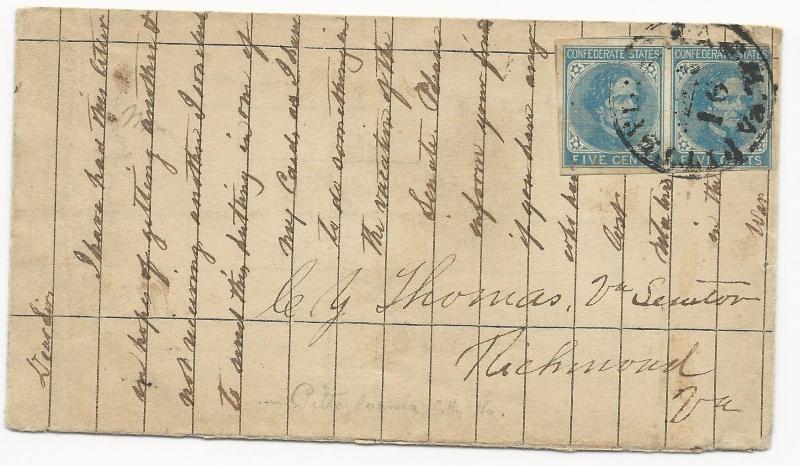 CONFEDERATE STATES
CONFEDERATE STATES
FIVE CENTS
FIVE CENTS
16
C Y Thomas, Va Senator
Richmond
Va
Pittsylvania C.H. Va.
Dear Sir
I have had this letter
in hopes of getting another &
not receiving another I
to send this, putting in one of
my Cards, as I
to do something in
the vacation of the
Senate. Please
inform your
if you have any
in the
War